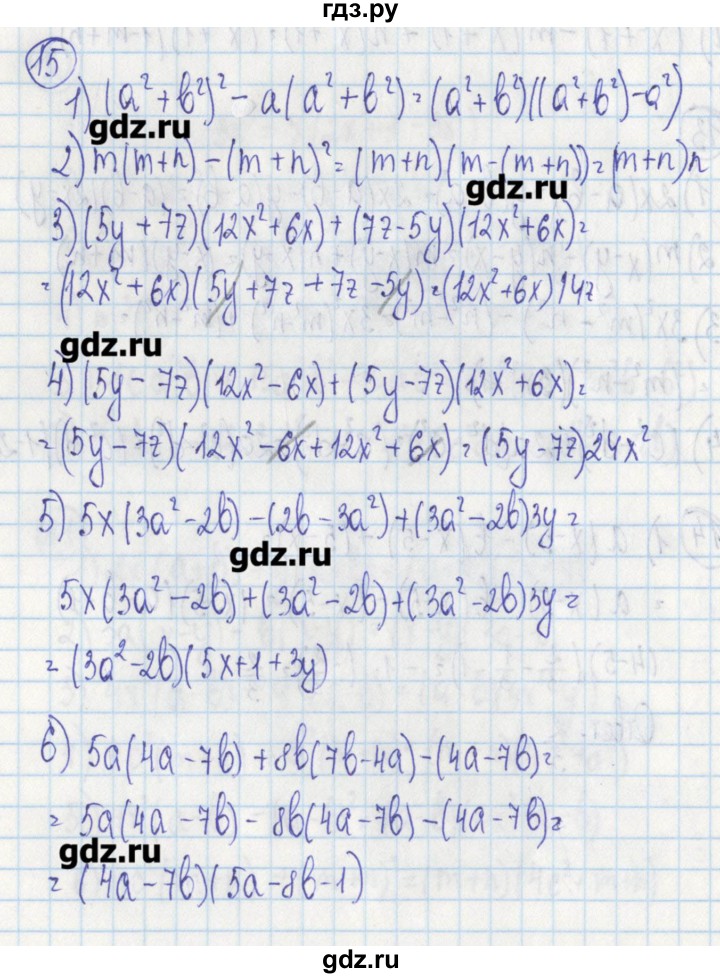 гдз.ру
15
1) (a²+b²)² - a(a²+b²) = (a²+b²)((a²+b²)-a²)
gdz.ru
2) m(m+n) - (m+n)² = (m+n)(m-(m+n)) = (m+n)n
gdz.ru
3) (5y+7z)(12x²+6x)+(7z-5y)(12x²+6x)=
= (12x²+6x)(5y+7z+7z-5y)=(12x²+6x)14z
gdz.ru
4) (5y-7z)(12x²-6x)+(5y-7z)(12x²+6x)=
= (5y-7z)(12x²-6x+12x²+6x) = (5y-7z)24x²
5) 5x(3a²-2b)-(2b-3a²)+(3a²-2b)3y=
gdz.ru
5x(3a²-2b)+(3a²-2b)+(3a²-2b)3y=
= (3a²-2b)(5x+1+3y)
6) 5a(4a-7b)+8b(7b-4a)-(4a-7b)=
= 5a(4a-7b)-8b(4a-7b)-(4a-7b)=
gdz.ru
= (4a-7b)(5a-8b-1)
gdz.ru